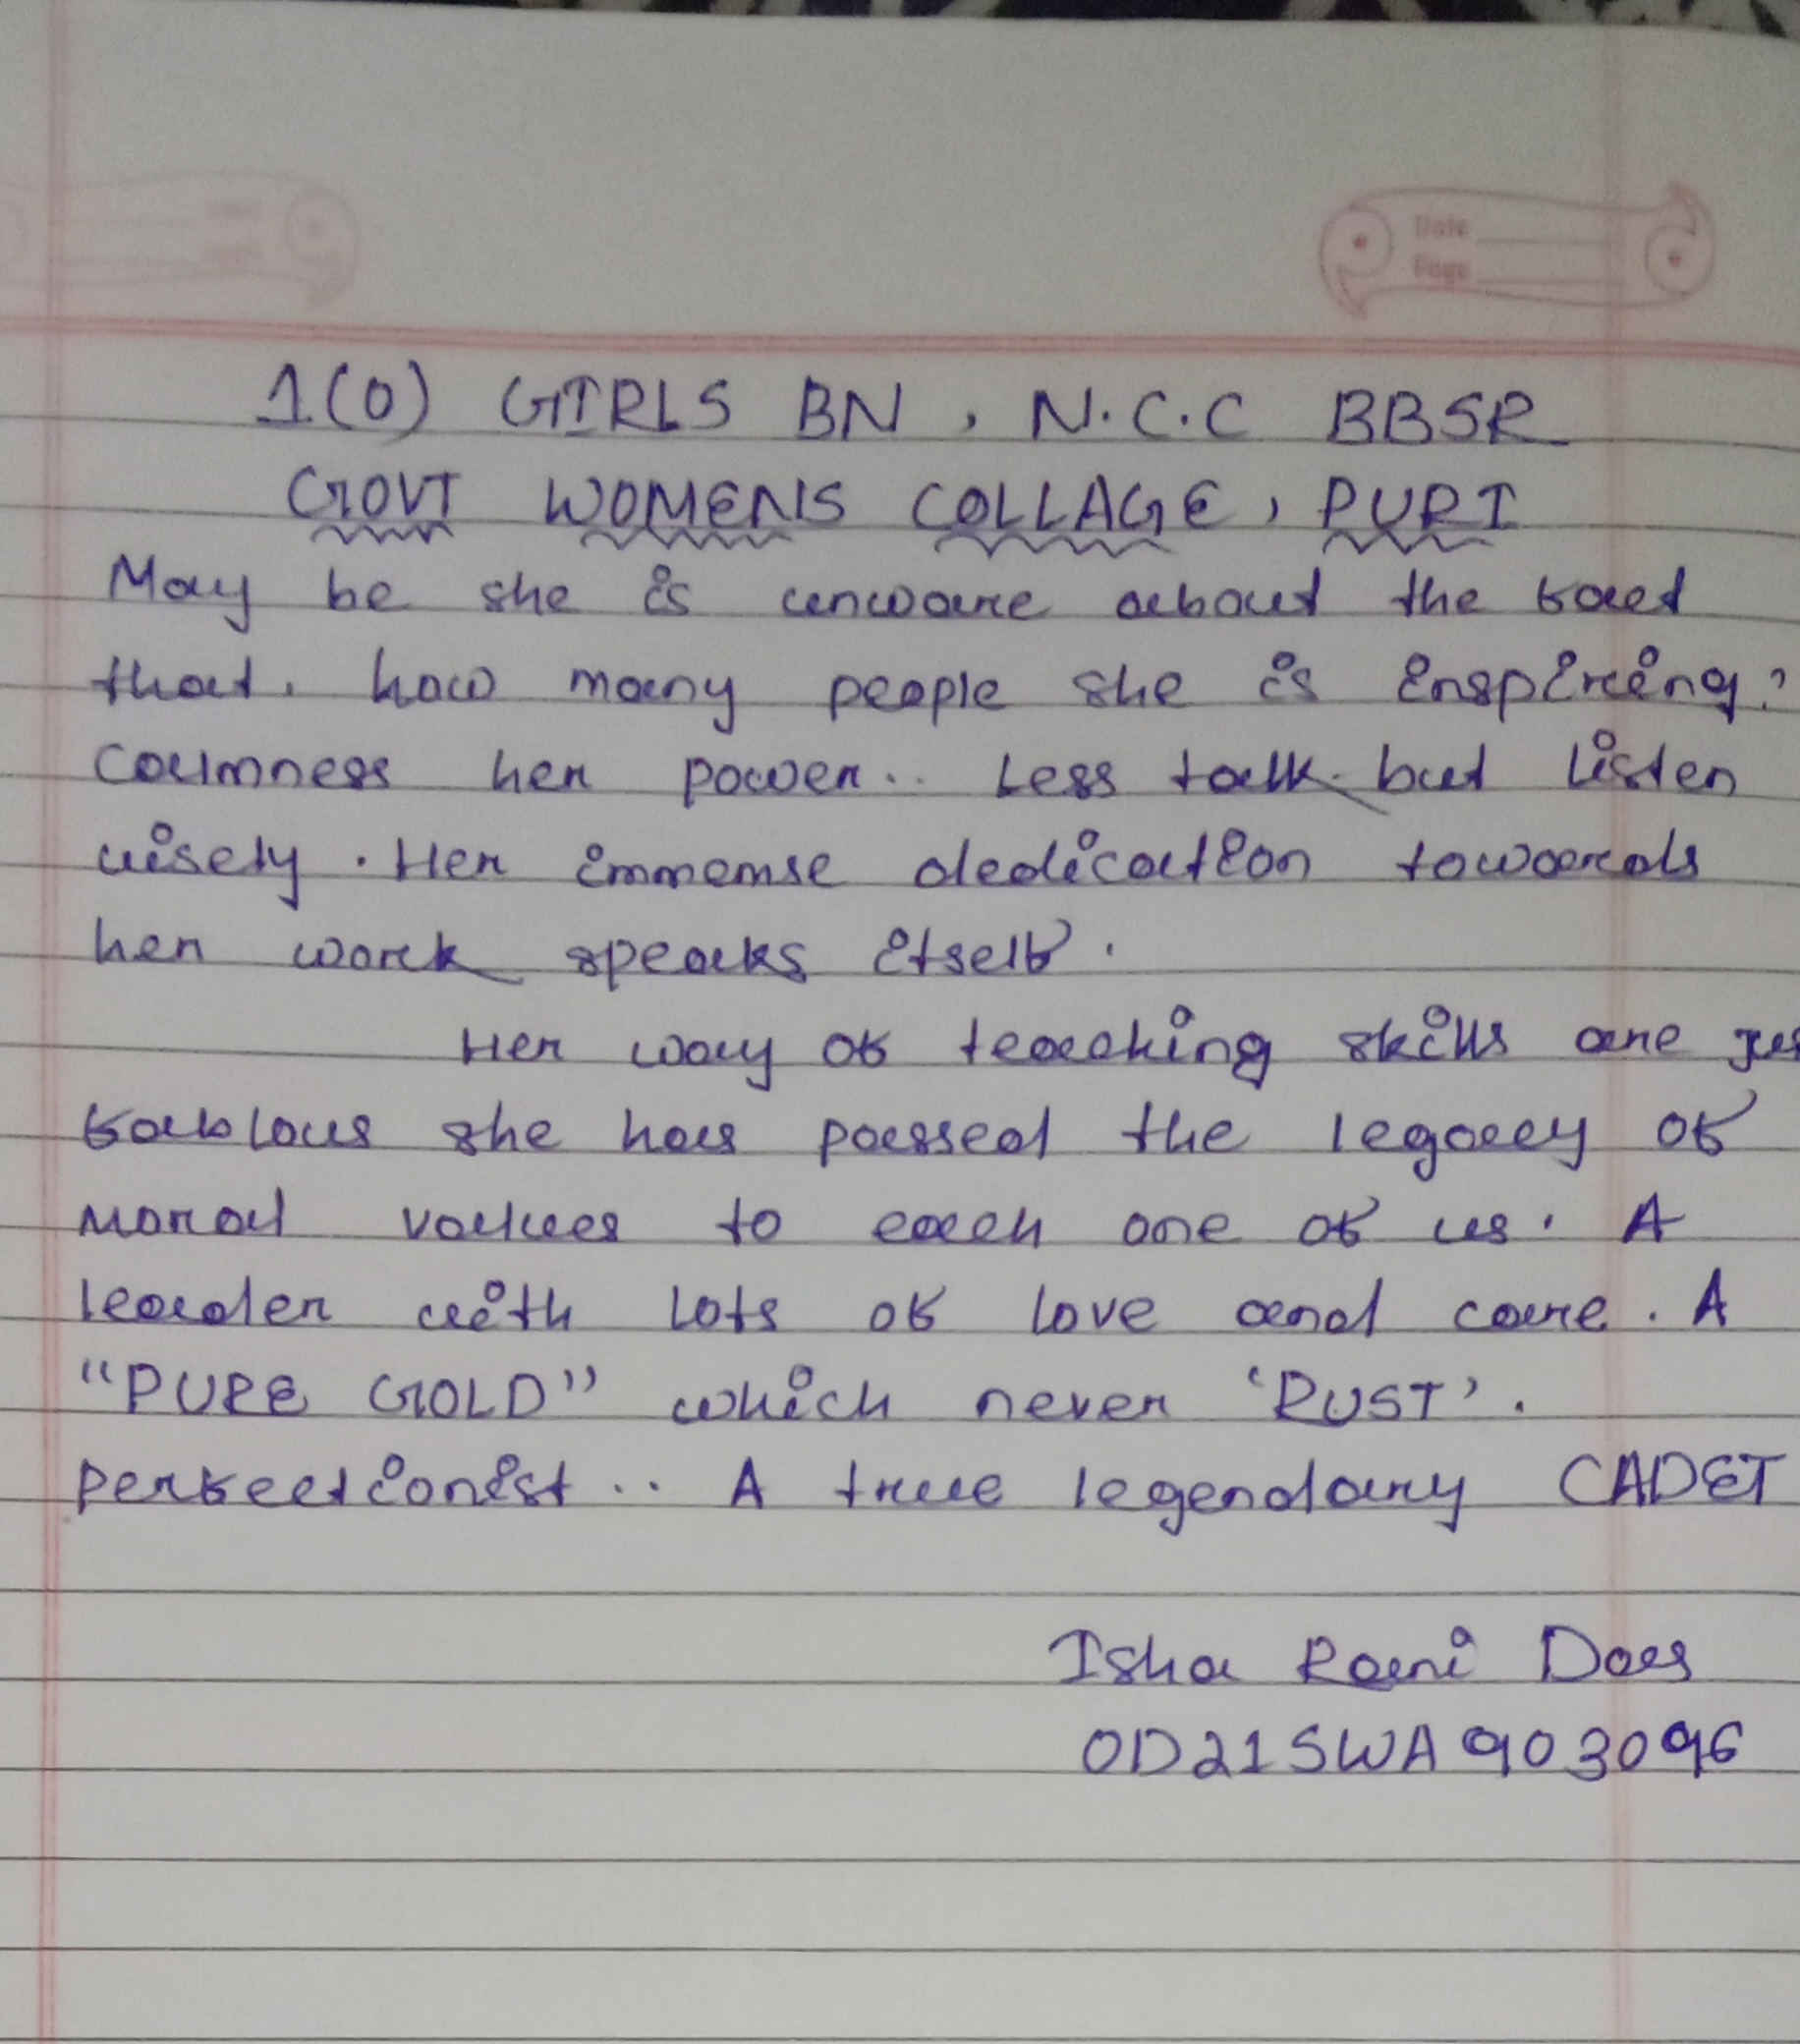 Date
Page
1(O) GIRLS BN, N.C.C BBSR
GOVT WOMENS COLLAGE, PURI
May be she is unware about the fact
that. how many people she is inspiring?
Calmness her power.. Less talk but listen
wisely. Her immemse dedication towards
her work speaks itself.
Her way of teaching skills are jus
fablous she has passed the legacy of
moral values to each one of us. A
leader with lots of love and care. A
"PURE GOLD" which never 'RUST'.
perfectionist.. A true legendary CADET
Isha Rani Das
OD21SWA903096